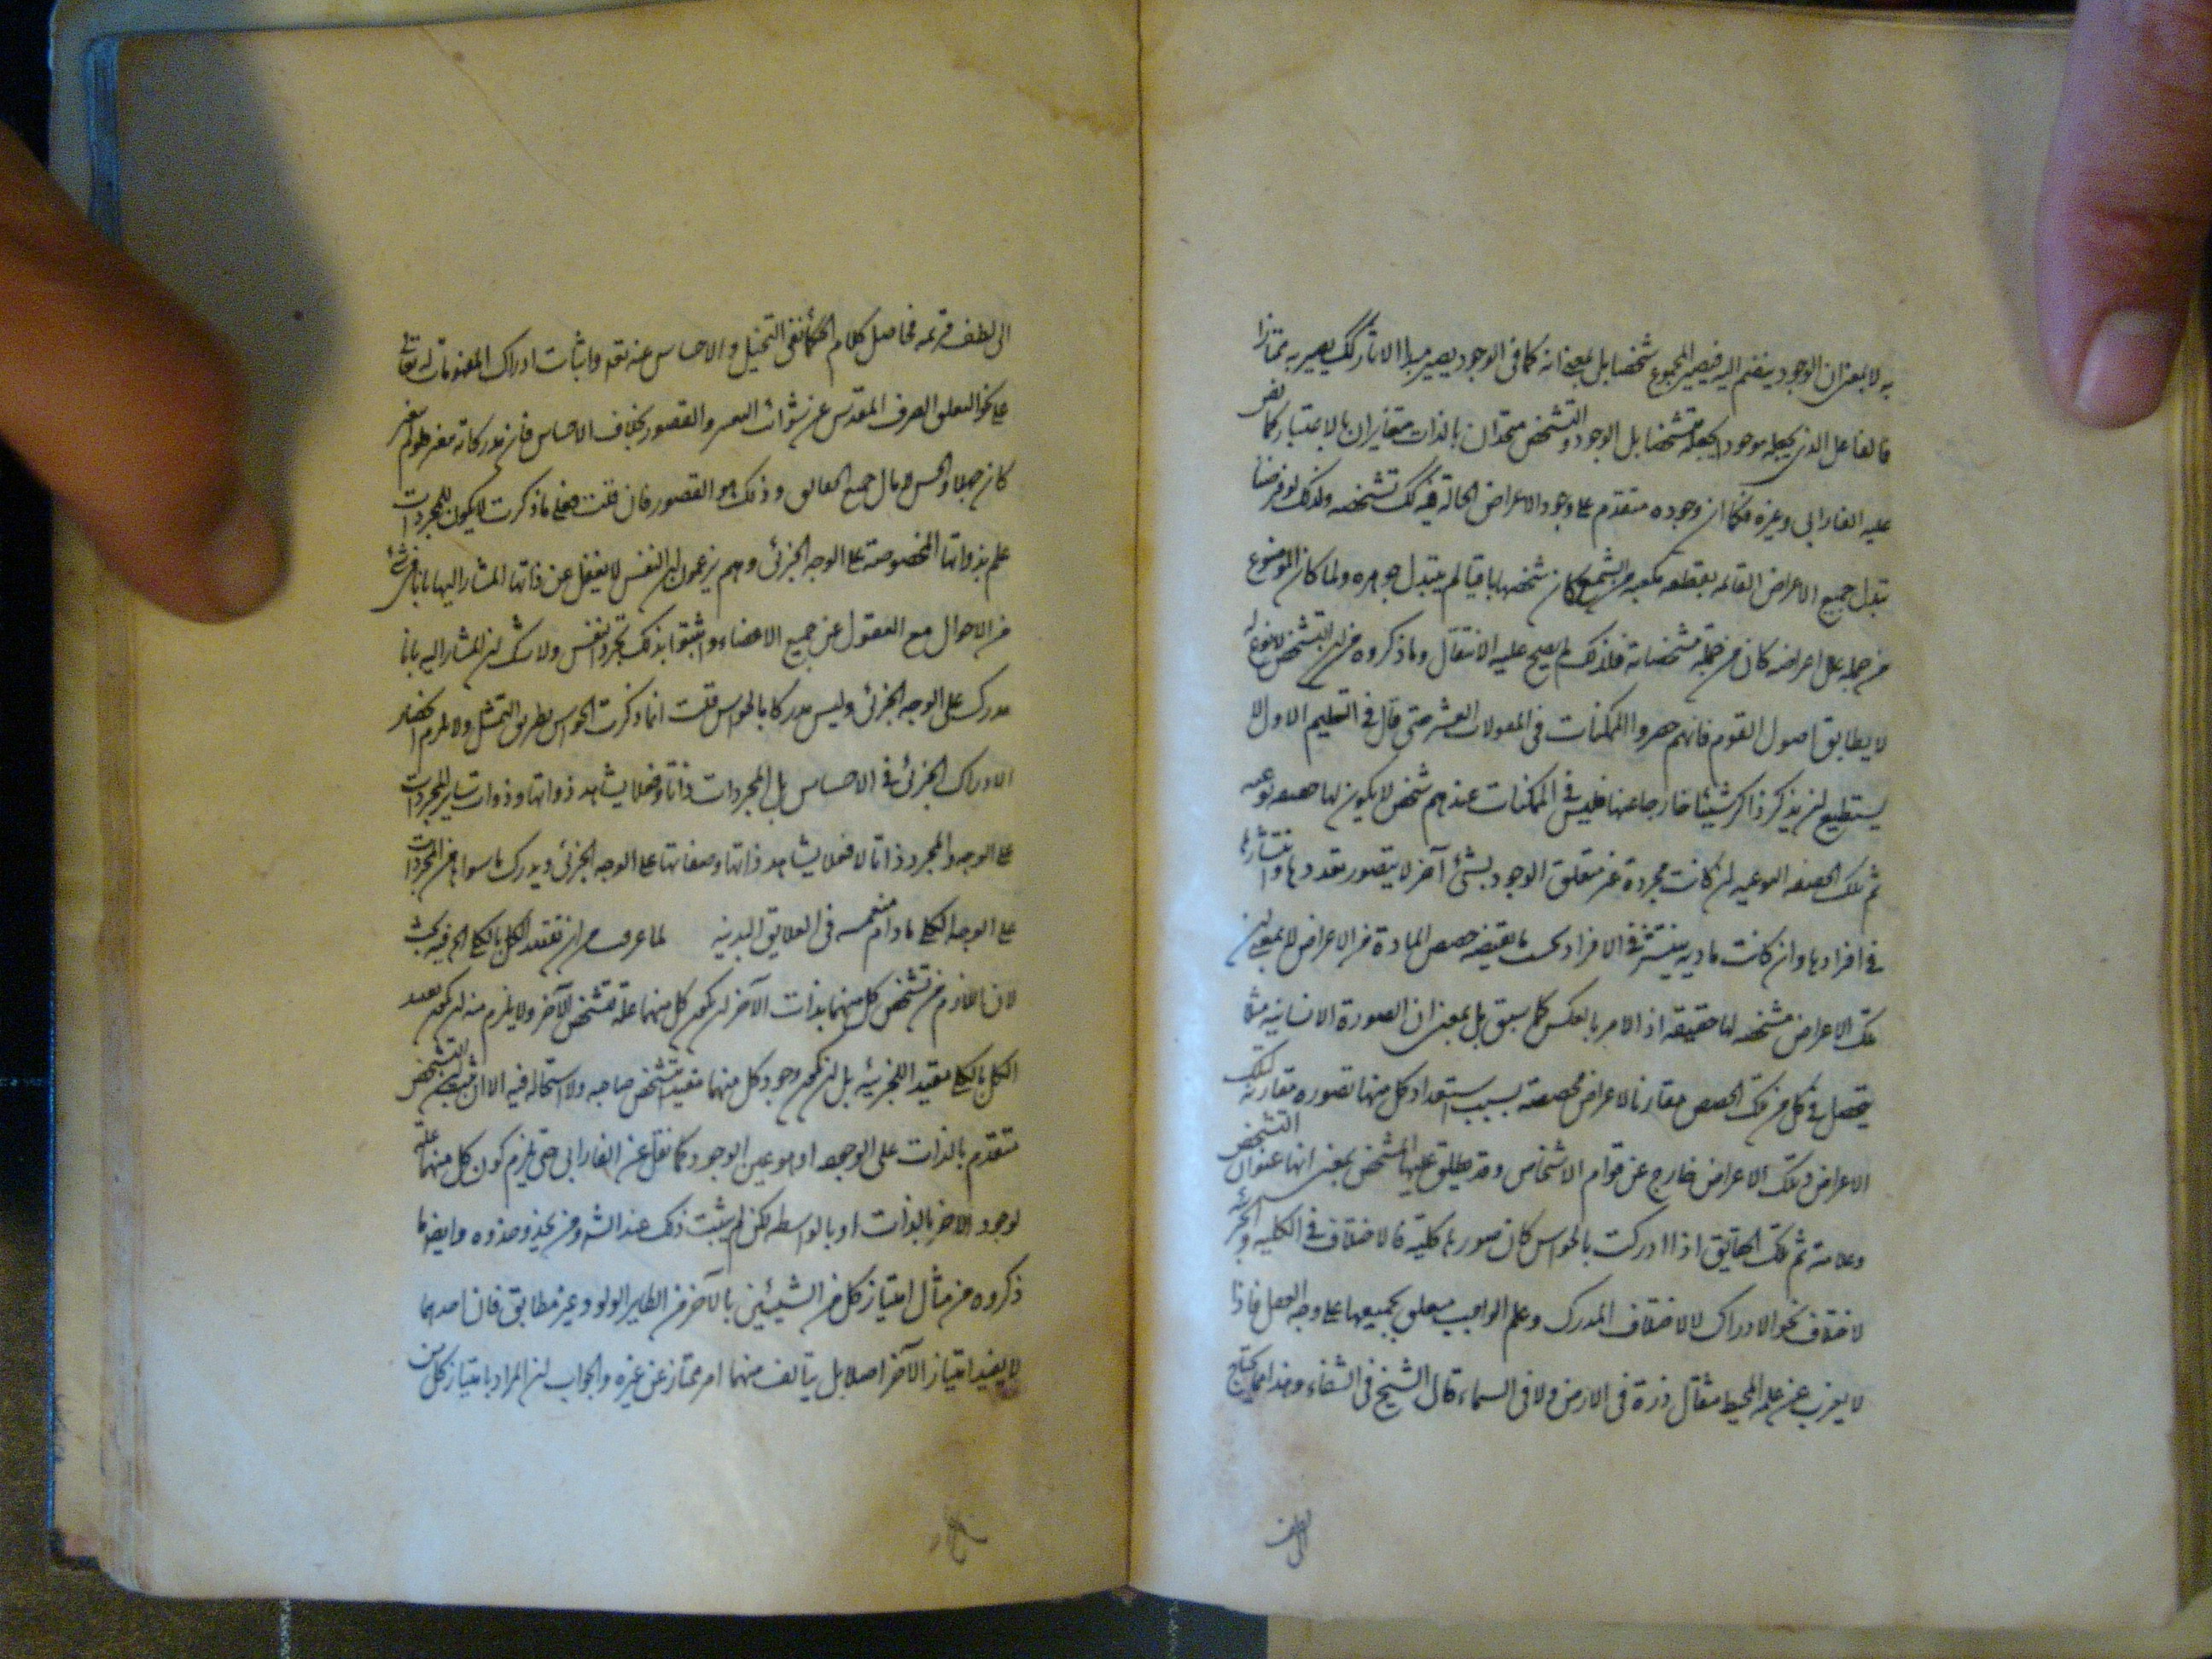 به لا بمعنى ان الوجود ينضم اليه فيصير المجموع شخصا بل بمعنى انه كما فى الوجود يصير مبدا الآثار كك يصير به ممتازا
فالفاعل الذى يجعله موجودا يجعله متشخصا بل الوجود والتشخص متحدان بالذات متغايران بالاعتبار كما نص
عليه الفارابى وغيره فكما ان وجوده متقدم على وجود الاعراض الحالة فيه كك تشخصه ولذلك لو فرضنا
تبدل جميع الاعراض القائمه بقطعه مكعبه من الشمع كان شخصها باقيا لم يتبدل جوهره ولما كان الموضوع
من جمله علل اعراضه كان من جملة مشخصاته فلذلك لم يصح عليه الانتقال وما ذكروه من ان التشخص لا نوع له
لا يطابق اصول القوم فانهم حصروا الممكنات فى المقولات العشر حتى قال فى التعليم الاول لا
يستطيع ان يذكر ذاكر شيئا خارجا عنها فليس فى الممكنات عندهم شخص لا يكون لها حصه نوعيه
ثم تلك الحصه النوعيه ان كانت مجردة غير متعلق الوجود بشئ آخر لا يتصور تعددها وانتشارها
فى افرادها وان كانت ماديه ينتشر فى الافراد بحسب ما يقتضيه حصص المادة من الاعراض لا بمعنى ان
تلك الاعراض مشخصه لها حقيقه اذ الامر بالعكس كما سبق بل بمعنى ان الصورة الانسانية مثلا
يحصل فى كل من تلك الحصص مقارنا لاعراض مخصصه بسبب استعداد كل منها تصوره مقارنة لتلك
الاعراض وتلك الاعراض خارج عن قوام الاشخاص وقد يطلق عليها المشخص بمعنى انها عنوان التشخص
وعلامته ثم تلك الحقايق اذا ادركت بالحواس كان صورها كلية فالاختلاف فى الكليه والجزئيه
لاختلاف نحو الادراك لا لاختلاف المدرك وعلم الواجب متعلق بجميعها على وجه العقل فاذا
لا يعزب عن علمه المحيط مثقال ذرة فى الارض ولا فى السماء قال الشيخ فى الشفاء وهذا مما يحتاج
الى لطف
الى لطف قريحه فحاصل كلام الحكماء نفى التخيل والاحساس عنه تعه واثبات ادراك المفهومات له تعالى
على نحو التعقل الصرف المقدس عن شوائب النقص والقصور بخلاف الاحساس فان مدركاته
كان وذلك هو القصور فان قلت فعلى ما ذكرت لا يكون للمجردات
علم بذواتها المخصوصة على الوجه الجزئى وهم يزعمون ان النفس لا يغفل عن ذاتها المشار اليها بانا فى شئ
من الاحوال مع الغفول عن جميع الاعضاء واثبتوا بذلك تجرد النفس ولا شك ان المشار اليه بانا
مدرك على الوجه الجزئى وليس مدركا بالحواس قلت انما ذكرت الحواس بطريق التمثيل ولا يلزم انحصار
الادراك الجزئى فى الاحساس بل المجردات ذاتا وفعلا يشاهد ذواتها وذوات ساير المجردات
على الوجه والمجرد ذاتا لا فعلا يشاهد ذاتها وصفاتها على الوجه الجزئى ويدرك ما سواها من المجردات
على الوجه الكلى ما دام منغمسه فى العلايق البدنيه لما عرفت من ان تقييد الكل بالكلى الخ فيه بحث
لان اللازم من تشخص كل منهما بذات الآخر ان يكون كل منهما علة لتشخص الآخر ولا يلزم منه ان يكون تقييد
الكل بالكلى مفيد اللجزئيه بل ان يكون وجود كل منهما مفيد تشخص صاحبه ولا استحاله فيه الا ان يثبت ان التشخص
متقدم بالذات على الوجود او هو عين الوجود كما نقل عن الفارابى حتى يلزم كون كل منهما علة
لوجود الاخر بالذات او بالواسطه لكن لم يثبت ذلك عند الش ومن يحذو حذوه وايضا ما
ذكروه من مثال امتياز كل من الشيئين بالآخر من الطاير الولود غير مطابق فان احدهما
لا يفيد امتياز الآخر اصلا بل يتألف منهما امر ممتاز عن غيره والجواب ان المراد بامتياز كل من